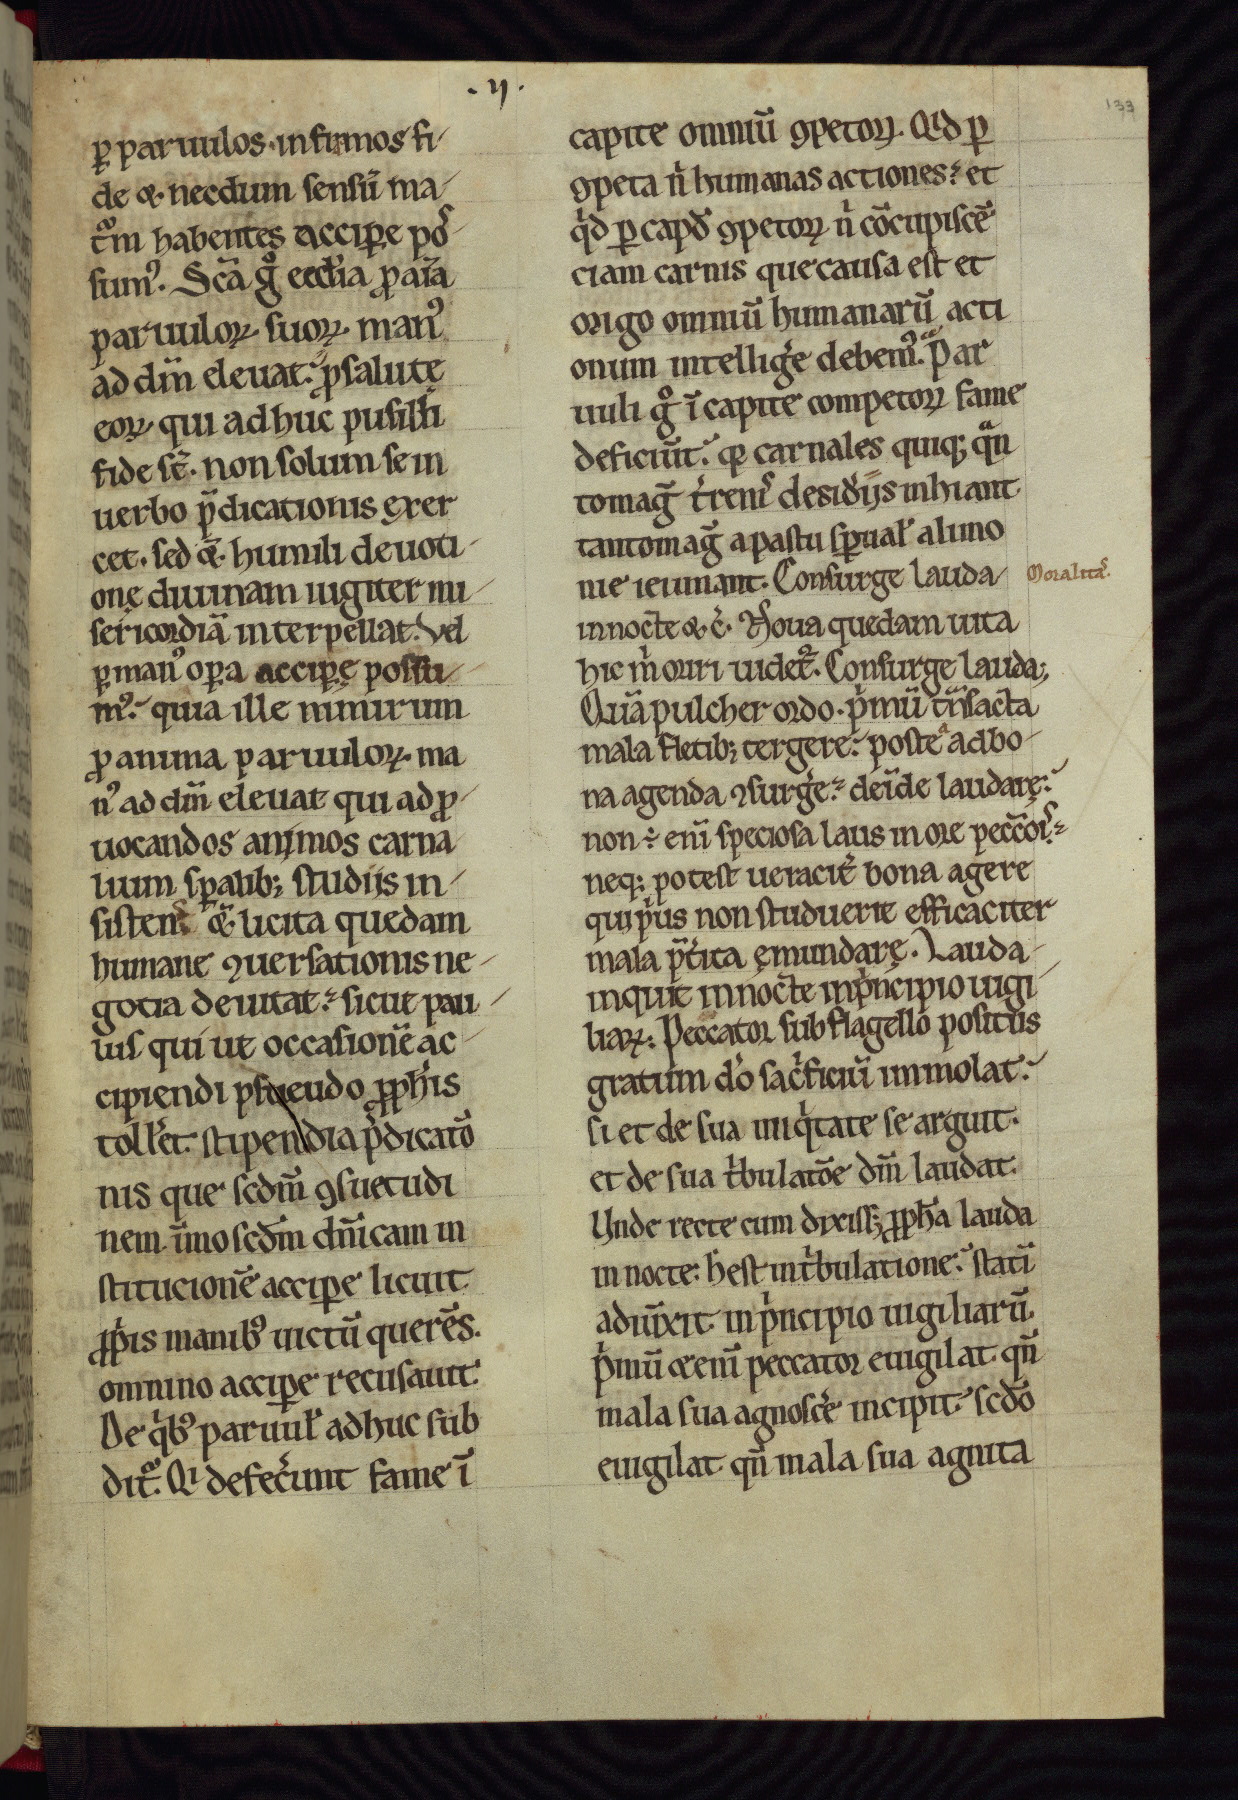 .ij.
133
ꝑ paruulos. infirmos fi
de &. necdum sensū ma
tᷣm habentes acciꝑe poſ
sumꝰ. Scā gͦ ecc̄ia ꝓ aīa
paruuloꝝ suoꝝ manꝰ
ad dn̄m eleuat. ꝓ salute
eoꝝ qui adhuc pusilli
fide sт̄. non solum se in
uerbo p̄dicationis exer
cet. sed &̄. humili deuoti
one diuinam iugiter mi
sericordiā interpellat. Vel
ꝑ manꝰ oꝑa acciꝑe possu
mꝰ. quia ille nimirum
ꝓ anima paruuloꝝ. ma
nꝰ ad dn̄m eleuat qui ad ꝓ
uocandos animos carna
lium sp̄alibꝫ studijs in
sistens &̄. licita quedam
humane ꝯuersationis ne
gotia deuitat. sicut pau
lus qui ut occasionē ac
cipiendi pseudo ꝓph̄is
toll̄et. stipendia p̄dicatō
nis que scdm̄ ꝯsuetudi
nem īmo scdm̄ dn̄icam in
stitucionē acciꝑe licuit
ꝓpͥis manibꝰ uictū querēs.
omnino acciꝑe recusauit.
De qͥbꝰ paruul̄ adhuc sub
ditᷣ. Qi defecͥunt fame ī
capite omniū ꝯpetoꝝ. Qid ꝑ
ꝯpeta nͥ humanas actiones. et
qͥd ꝑ capd̄ ꝯpetoꝝ nͥ cōcupiscē
ciam carnis que causa est et
origo omniū humanarū acti
onum intelligͤe debemꝰ. Par
uuli gͦ ī capite competoꝝ fame
deficiūt. qꝛ carnales quiqꝫ qͣn
to maḡ tͤrenis desidͤijs inhiant
tanto maḡ a pastu sp̄ual̄ alimo
nie ieiunant. Consurge lauda
in nocte &. c̄. Noua quedam uita
hic m̄ oriri uidetᷣ. Consurge laudaꝫ
Quā pulcher ordo. pͥmū trāsacta
mala fletibꝫ tergere. postea ad bo
na agenda ꝯsurgͤe. deīde laudare.
non ÷ enī speciosa laus in ore pecc̄oris.
neqꝫ potest ueracitͤ bona agere
qui pͥus non studuerit efficaciter
mala p̄tͤita emundare. Lauda
inquit in nocte in pͥncipio uigi
liaꝝ. Peccator sub flagello positus
gratum dō sacͥficiū immolat.
si et de sua iniqͥtate se arguit.
et de sua tͥbulatōe dn̄m laudat.
Vnde recte cum dixissꝫ ꝓph̄a lauda
in nocte. h̄ est in tͥbulatione. statī
adiūxit. in pͥncipio uigiliarū.
pͥmū &enī peccator euigilat. qn̄
mala sua agnoscͤe incipit. scdō
euigilat qn̄ mala sua agnita
Moralitas.